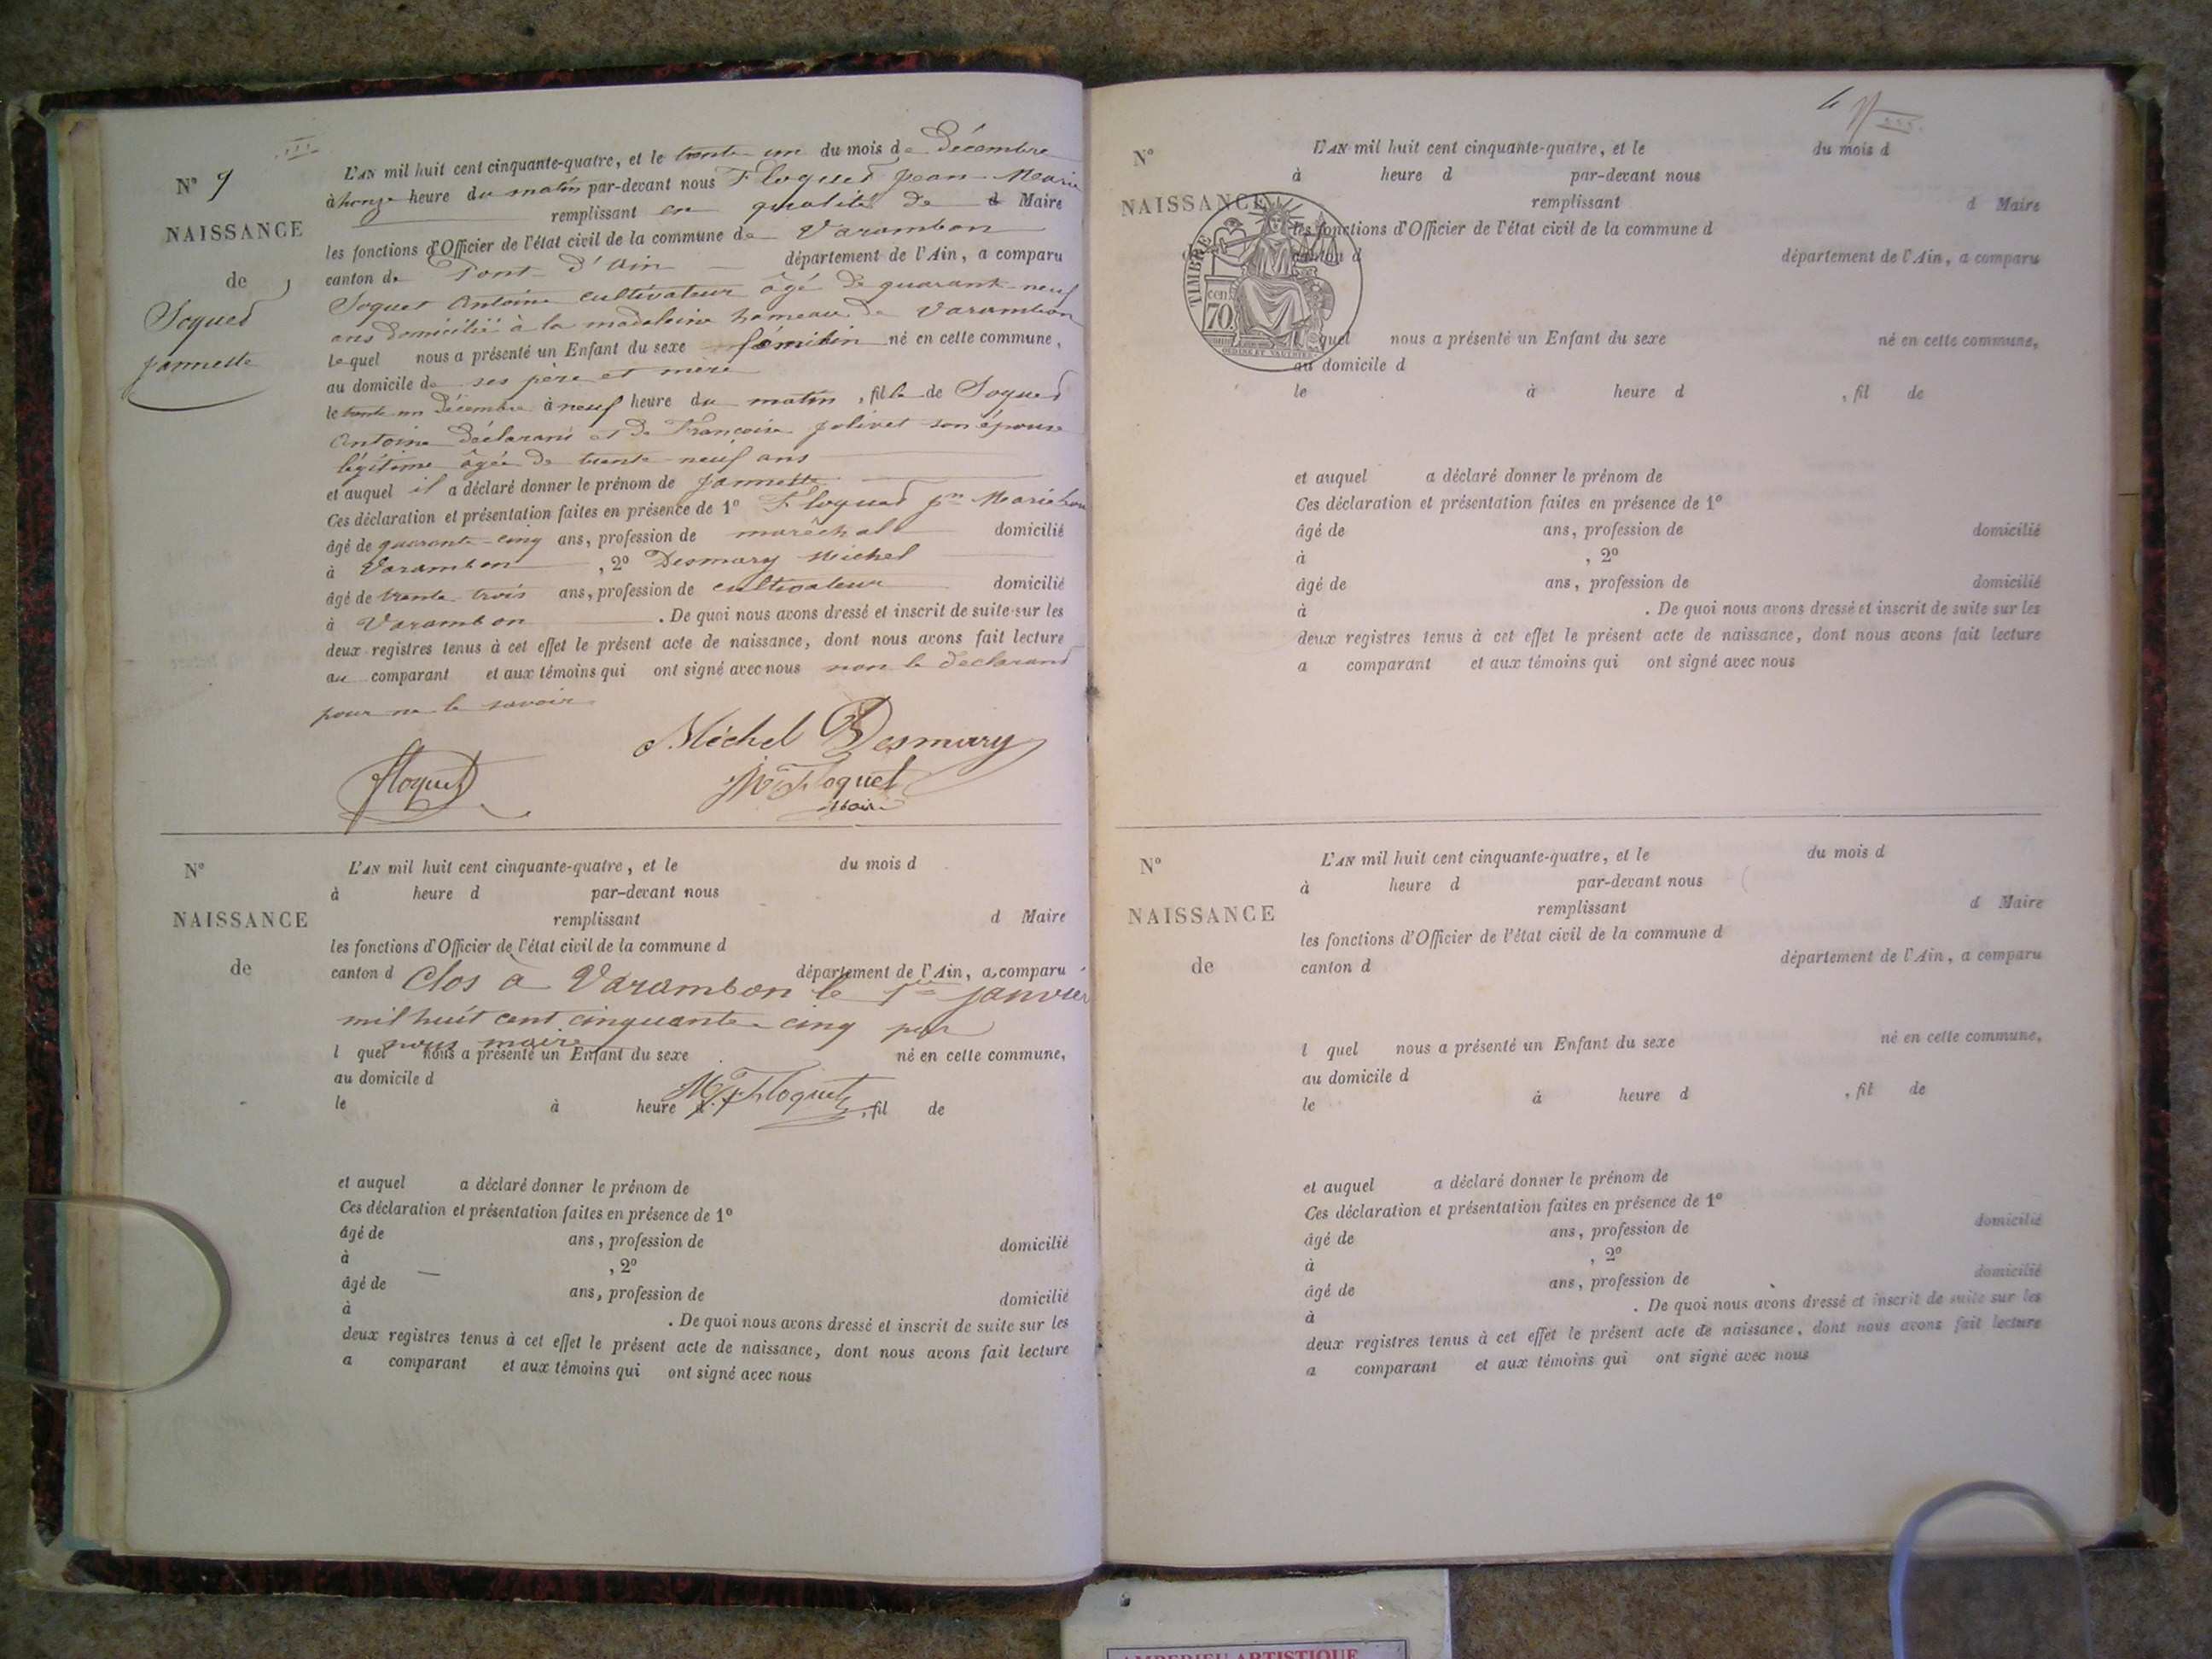 N° 9
NAISSANCE
de
Soquet
jannette
L'AN mil huit cent cinquante-quatre, et le trente un du mois de Décembre
à honze heure du matin par-devant nous Floquet Jean-Marie
remplissant en qualité de d Maire
les fonctions d'Officier de l'état civil de la commune de Varambon
canton de Pont d'Ain département de l'Ain, a comparu
Soquet Antoine cultivateur âgé de quarante-neuf
ans domicilié à la madeleine hameau de Varambon
lequel nous a présenté un Enfant du sexe féminin né en cette commune,
au domicile de ses père et mère
le trente un Décembre à neuf heure du matin, fille de Soquet
Antoine déclarant et de Françoise jolivet son épouse
légitime âgée de trente-neuf ans
et auquel il a déclaré donner le prénom de jannette
Ces déclaration et présentation faites en présence de 1° Floquet jn Marie
âgé de quarante-cinq ans, profession de maréchal domicilié
à Varambon, 2° Desmary Michel
âgé de trente trois ans, profession de cultivateur domicilié
à Varambon. De quoi nous avons dressé et inscrit de suite sur les
deux registres tenus à cet effet le présent acte de naissance, dont nous avons fait lecture
au comparant et aux témoins qui ont signé avec nous non le declarant
pour ne le savoir
Michel Desmary
floquet
Floquet
Maire
N°
NAISSANCE
de
L'AN mil huit cent cinquante-quatre, et le du mois d
à heure d par-devant nous
remplissant d Maire
les fonctions d'Officier de l'état civil de la commune d
canton d département de l'Ain, a comparu
Clos a Varambon le 1er janvier
mil huit cent cinquante cinq par
nous maire
l quel nous a présenté un Enfant du sexe né en cette commune,
au domicile d
Floquet
le à heure d , fil de
et auquel a déclaré donner le prénom de
Ces déclaration et présentation faites en présence de 1°
âgé de ans, profession de domicilié
à , 2°
âgé de ans, profession de domicilié
à . De quoi nous avons dressé et inscrit de suite sur les
deux registres tenus à cet effet le présent acte de naissance, dont nous avons fait lecture
a comparant et aux témoins qui ont signé avec nous
N°
NAISSANCE
L'AN mil huit cent cinquante-quatre, et le du mois d
à heure d par-devant nous
remplissant d Maire
les fonctions d'Officier de l'état civil de la commune d
canton d département de l'Ain, a comparu
TIMBRE
cen.
70.
quel nous a présenté un Enfant du sexe né en cette commune,
au domicile d
le à heure d , fil de
et auquel a déclaré donner le prénom de
Ces déclaration et présentation faites en présence de 1°
âgé de ans, profession de domicilié
à , 2°
âgé de ans, profession de domicilié
à . De quoi nous avons dressé et inscrit de suite sur les
deux registres tenus à cet effet le présent acte de naissance, dont nous avons fait lecture
a comparant et aux témoins qui ont signé avec nous
N°
NAISSANCE
de
L'AN mil huit cent cinquante-quatre, et le du mois d
à heure d par-devant nous
remplissant d Maire
les fonctions d'Officier de l'état civil de la commune d
canton d département de l'Ain, a comparu
l quel nous a présenté un Enfant du sexe né en cette commune,
au domicile d
le à heure d , fil de
et auquel a déclaré donner le prénom de
Ces déclaration et présentation faites en présence de 1°
âgé de ans, profession de domicilié
à , 2°
âgé de ans, profession de domicilié
à . De quoi nous avons dressé et inscrit de suite sur les
deux registres tenus à cet effet le présent acte de naissance, dont nous avons fait lecture
a comparant et aux témoins qui ont signé avec nous
AMBERIEU ARTISTIQUE